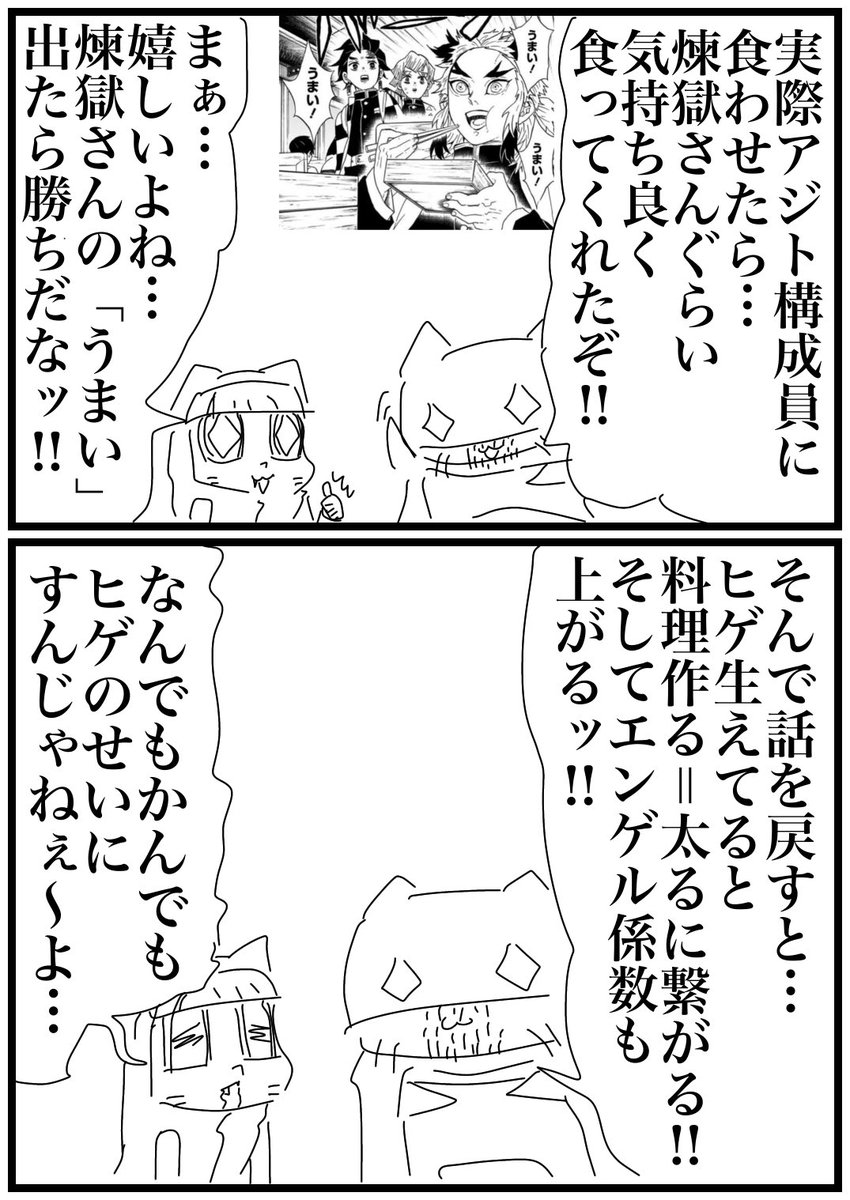 実際アジト構成員に
食わせたら…
煉獄さんぐらい
気持ち良く
食ってくれたぞ!!
うまい!
うまい!
うまい!
うまい!
まぁ…
嬉しいよね…
煉獄さんの「うまい」
出たら勝ちだなッ!!
そんで話を戻すと…
ヒゲ生えてると
料理作る＝太るに繋がる!!
そしてエンゲル係数も
上がるッ!!
なんでもかんでも
ヒゲのせいに
すんじゃねぇ～よ…